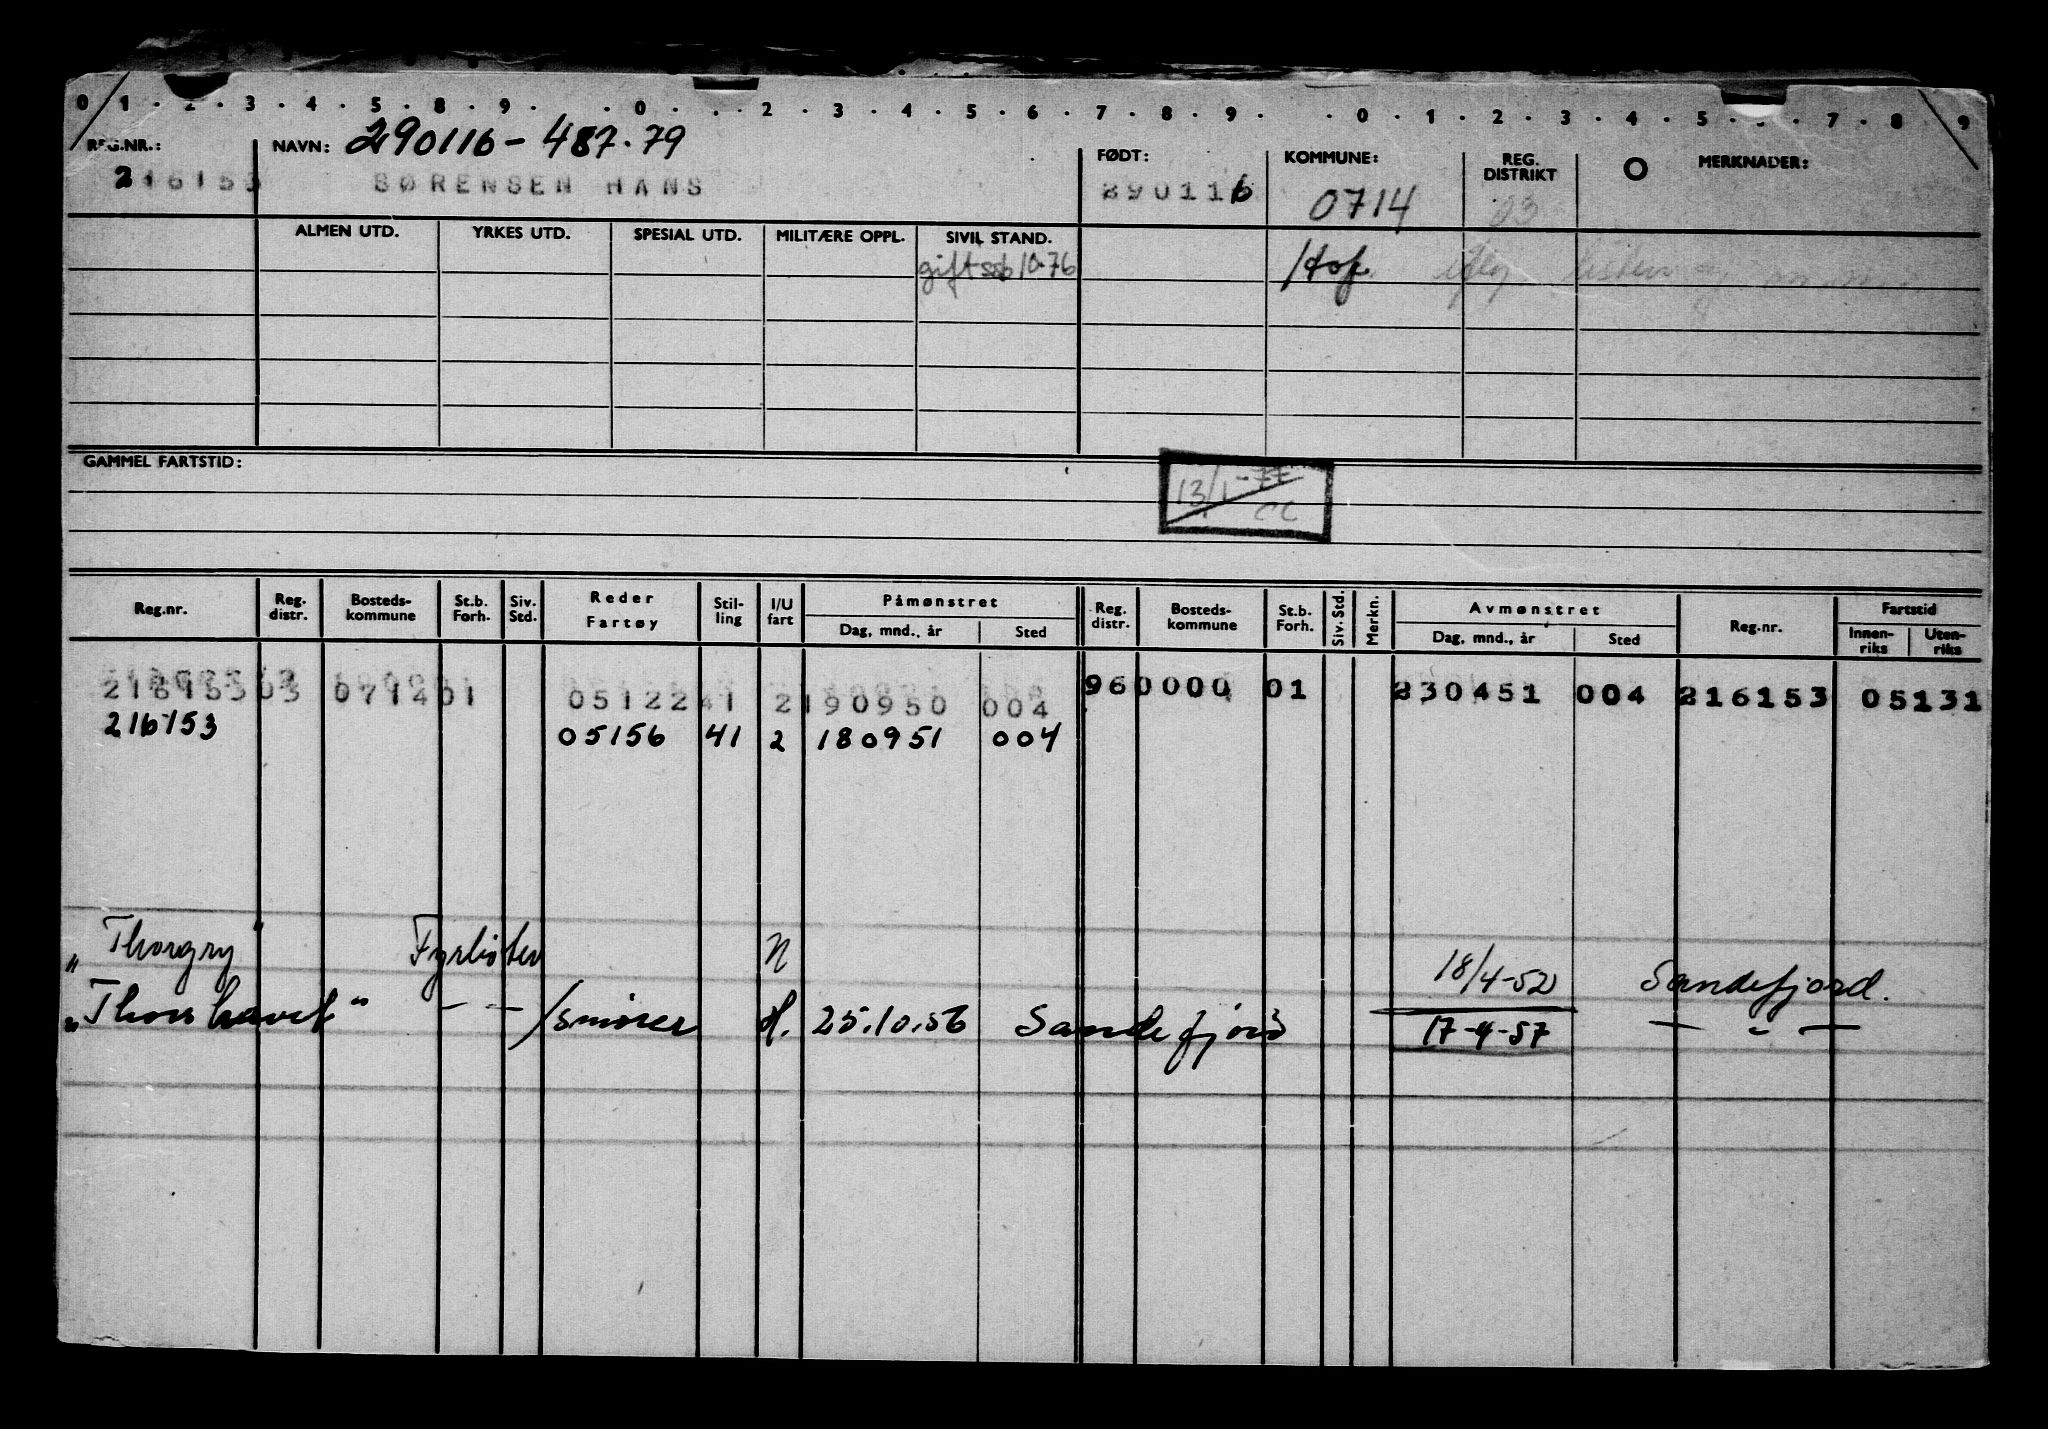 0 1 . 2 . 3 . 4 . 5 . 8 . 9 . . 0 . . . 2 . 3 . 4 . 5 . 6 . 7 . 8 . 9 . . 0 . 1 . 2 . 3 . 4 . 5 . . 7 . 8 9
REG.NR.: NAVN: 290116-487.79 FØDT: KOMMUNE: REG. DISTRIKT O MERKNADER:
216153 SØRENSEN HANS 290116 0714 03
ALMEN UTD. YRKES UTD. SPESIAL UTD. MILITÆRE OPPL. SIVIL STAND.
gift ssb 10-76 Hof.
GAMMEL FARTSTID:
13/1-77
CC
Reg.nr. Reg. distr. Bosteds-kommune St.b. Forh. Siv. Std. Reder Fartøy Stil-ling I/U fart Påmønstret Reg. distr. Bosteds-kommune St.b. Forh. Siv. Std. Merkn. Avmønstret Reg.nr. Fartstid
Dag, mnd., år Sted Dag, mnd., år Sted Innen-riks Uten-riks
216153 03 0714 01 05122 41 2 190950 004 96 0000 01 230451 004 216153 05131
216153 05156 41 2 180951 004
"Thorgry" Fyrbøter N 18/4-52 Sandefjord.
"Thorshavet" - " - /smører H. 25.10.56 Sandefjord 17-4-57 - " -